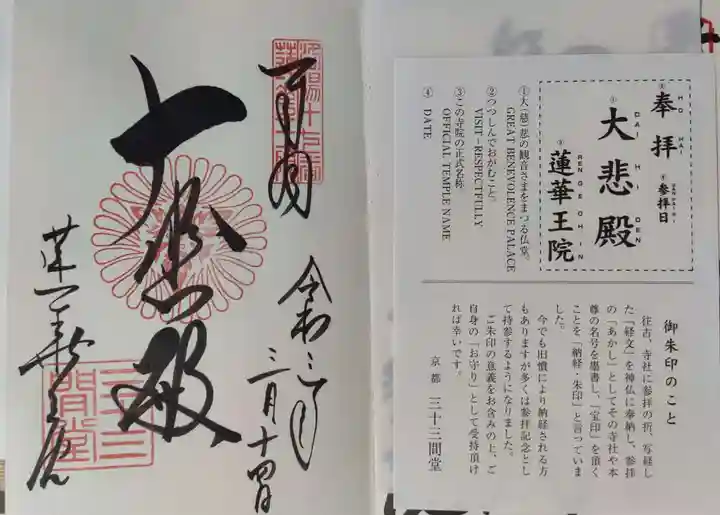 奉拝
令和三年
三月十四日
大悲殿
蓮華王院
洛陽十七番
三十三間堂
④参拝日
SANPAI BI
③奉拝
HO HAI
①大悲殿
DAI HI DEN
蓮華王院
RENGEOHIN
①大(慈)悲の観音さまをまつる仏堂。
GREAT BENEVOLENCE PALACE
②つつしんでおがむこと。
VISIT–RESPECTFULLY
③この寺院の正式名称
OFFICIAL TEMPLE NAME
④
DATE
御朱印のこと
往古、寺社に参拝の折、写経し
た「経文」を神仏に奉納し、参拝
の「あかし」としてその寺社や本
尊の名号を墨書し、「宝印」を頂く
ことを「納経・朱印」と言っていま
した。
今でも旧慣により納経される方
もありますが多くは参拝記念とし
て持参するようになりました。
ご朱印の意義をお含みの上、ご
自身の「お守り」として受持頂け
れば幸いです。
京都 三十三間堂